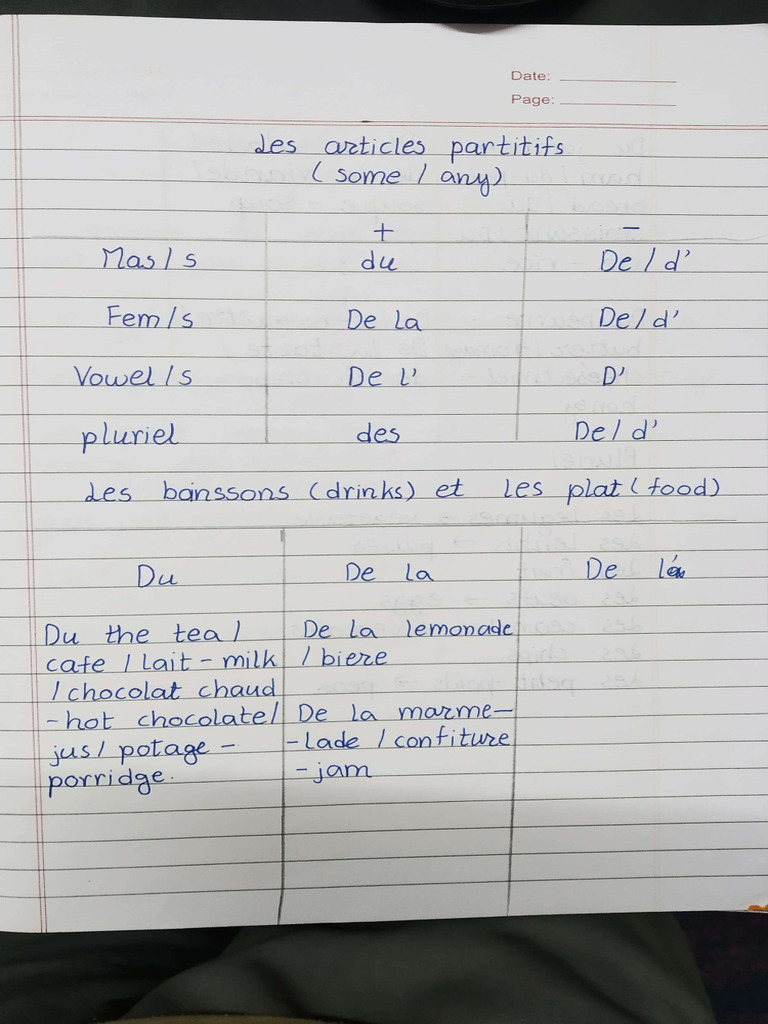 Date:
Page:
Les articles partitifs
(some / any)
+ -
Mas/s du De/d'
Fem/s De la De/d'
Vowel/s De l' D'
pluriel des De/d'
Les boinssons (drinks) et les plat (food)
Du De la De
Du the tea/ De la lemonade
cafe / lait - milk / biere
/ chocolat chaud
- hot chocolate/ De la marme-
jus/ potage - - lade / confiture
porridge. - jam